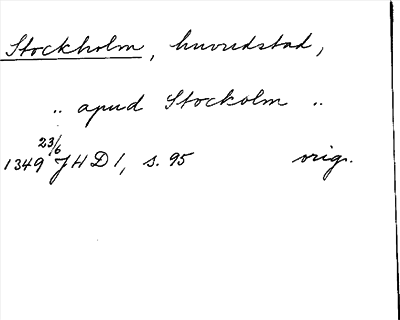 Stockholm, huvudstad,
.. apud Stockolm ..
1349 23/6 JHD 1, s. 95 orig.